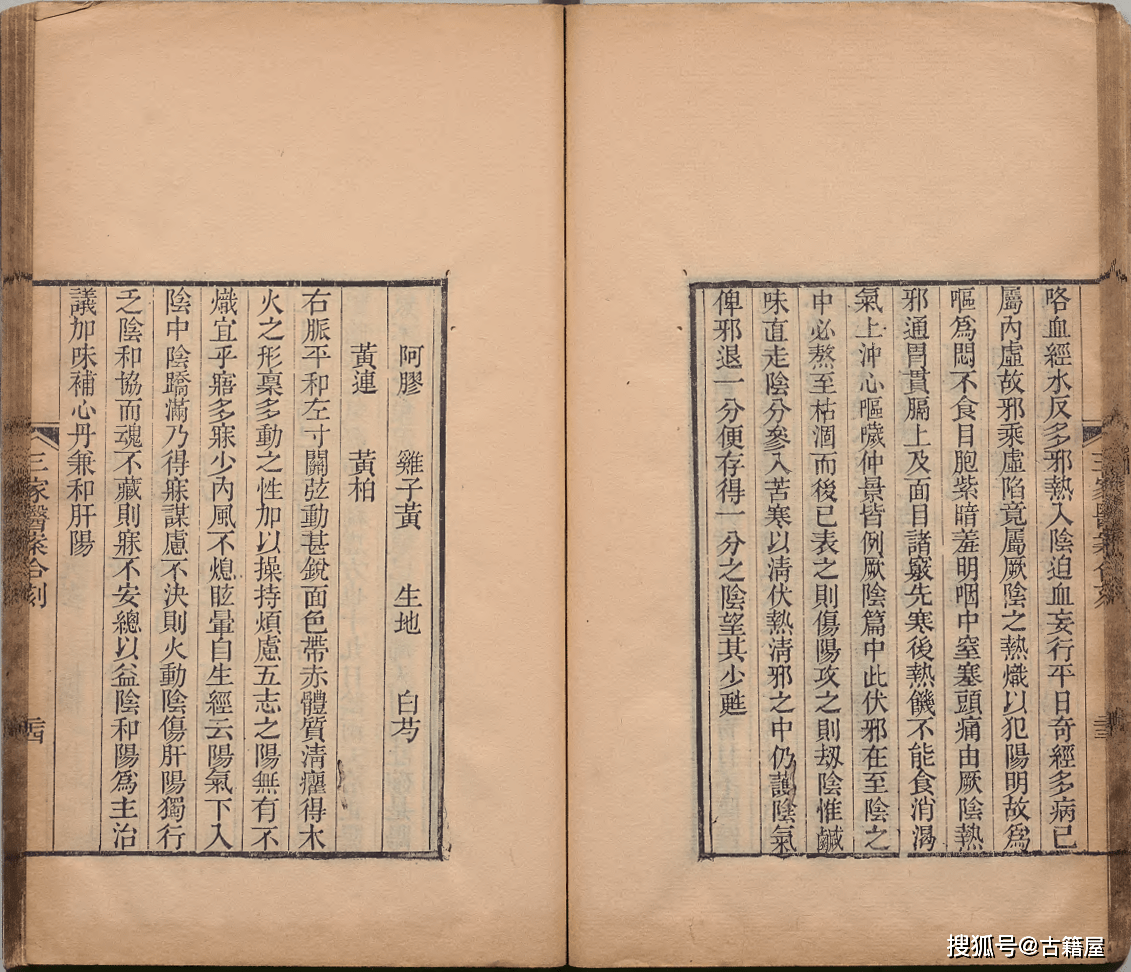 咯血經水反多邪熱入陰迫血妄行平日奇經多病已
屬內虛故邪乘虛陷竟屬厥陰之熱熾以犯陽明故為
嘔為悶不食目胞紫暗羞明咽中窒塞頭痛由厥陰熱
邪通胃貫膈上及面目諸竅先寒後熱饑不能食消渴
氣上沖心嘔噦仲景皆例厥陰篇中此伏邪在至陰之
中必熬至枯涸而後已表之則傷陽攻之則刼陰惟鹹
味直走陰分參入苦寒以清伏熱清邪之中仍護陰氣
俾邪退一分便存得一分之陰望其少甦
三家醫案合刻
阿膠 雞子黃 生地 白芍
黃連 黃柏
右脈平和左寸關弦動甚銳面色帶赤體質清癯得木
火之形稟多動之性加以操持煩慮五志之陽無有不
熾宜乎寤多寐少內風不熄眩暈自生經云陽氣下入
陰中陰蹻滿乃得寐謀慮不決則火動陰傷肝陽獨行
乏陰和協而魂不藏則寐不安總以益陰和陽為主治
議加味補心丹兼和肝陽
三家醫案合刻
搜狐号@古籍屋